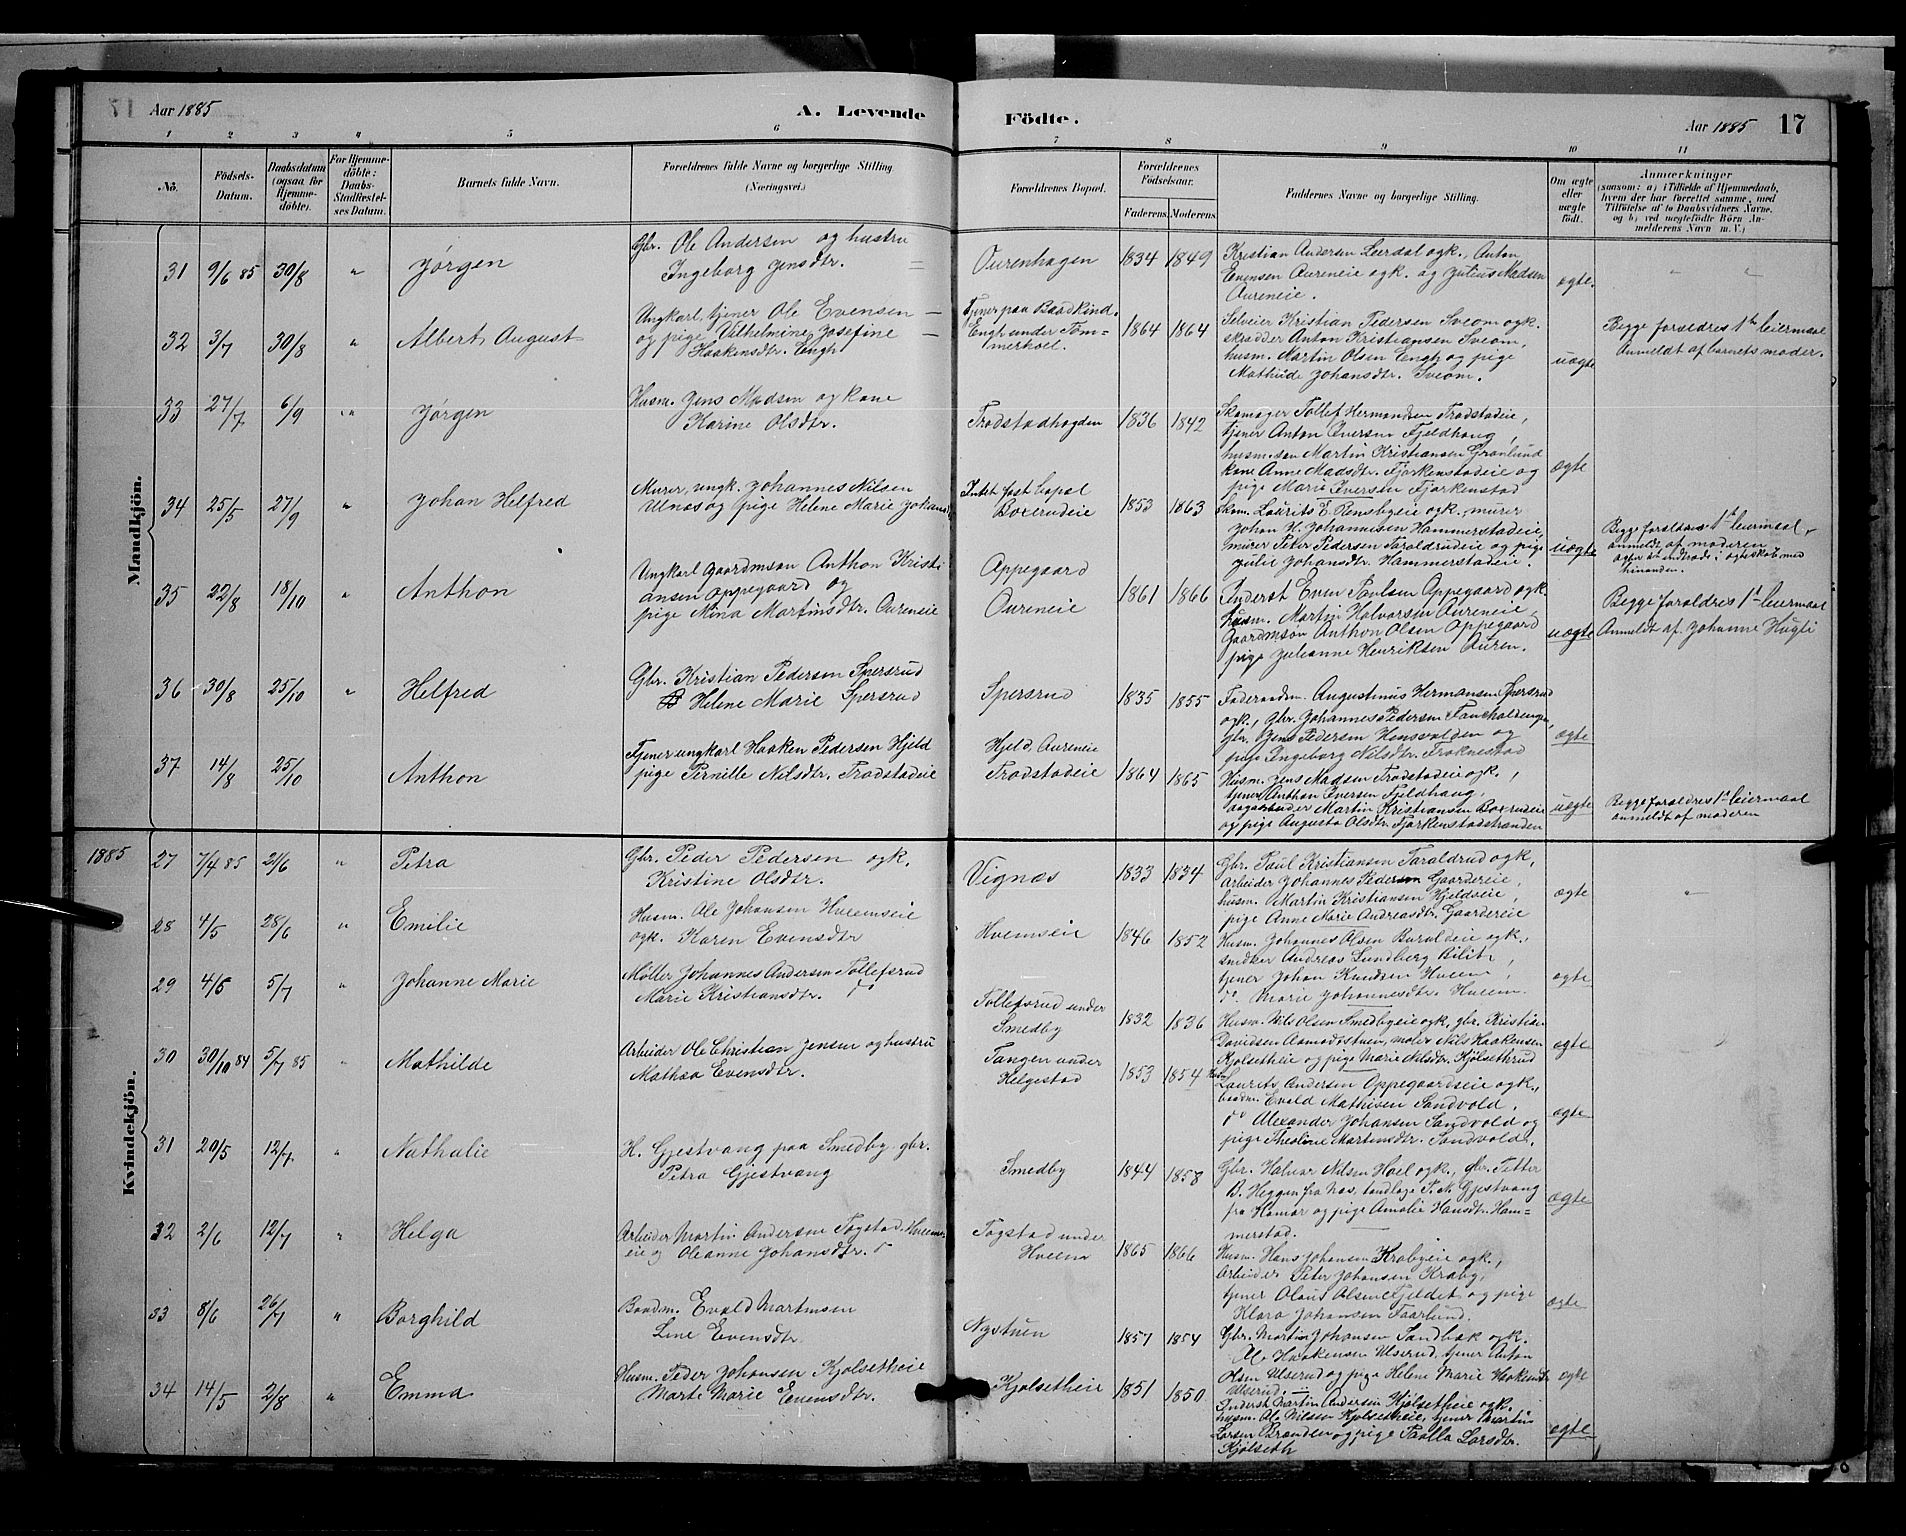 Aar 1885
A. Levende
Födte.
Aar 1885 17
1 2 3 4 5 6 7 8 9 10 11
No.
Födsels-
Datum.
Daabsdatum
(ogsaa for
Hjemme-
döbte).
For Hjemme-
döbte:
Daabs-
Stadfæstel-
ses Datum.
Barnets fulde Navn.
Forældrenes fulde Navne og borgerlige Stilling
(Næringsvei.)
Forældrenes Bopæl.
Forældrenes
Födselsaar.
Faderens. Moderens.
Faddernes Navne og borgerlige Stilling.
Om ægte
eller
uægte
födt.
Anmærkninger
(saasom: a) i Tilfælde af Hjemmedaab,
hvem der har forrettet samme, med
Tilföielse af to Daabsvidners Navne.
og b) ved uægtefödte Börn An-
melderens Navn m. V.)
Mandkjön.
31 9/6 85 30/8 " Jørgen
Gbr. Ole Andersen og hustru
Ingeborg Jensdtr.
Aurenhagen 1834 1849
Kristian Andersen Leirdal ogk., Anton
Evensen Aureneie ogk. og Julius Madsen
Aureneie.
ægte. " "
32 3/7 30/8 " Albert August
Ungkarl, tjener Ole Evensen
og pige Vilhelmine Josefine
Haakensdtr. Engh
Tjener paa Baadkind.
Engh under Tøm-
merhoel.
1864 1864
Selveier Kristian Pedersen Sveom ogk.
skrædder Anton Kristiansen Sveom,
husm. Martin Olsen Engh og pige
Mathilde Johansdtr. Sveom.
uægte
Begge forældres 1ste leiermaal
Anmeldt af barnets moder.
33 27/7 6/9 " Jørgen
Husm. Jens Madsen og kone
Karine Olsdtr.
Trodstadhagden 1836 1842
Skomager Tollef Hermandsen Trodstadeie,
tjener Anton Iversen Fjeldhaug,
husm.søn Martin Kristiansen Grønlund
kone Anne Madsdtr. Fjørkenstadeie og
pige Marie Iversen Fjørkenstad
ægte
34 25/5 27/9 " Johan Helfred
Murer, ungk. Johannes Nilsen
Ulnæs og pige Helene Marie Johansd
Intet fast bopæl
Boxerudeie
1853 1863
Laurits E. Rensbyeie ogk., murer
Johan H. Johannesen Hammerstadeie,
murer Peter Pedersen Taraldrudeie og pige
Julie Johansdtr. Hammerstadeie.
uægte
Begge forældres 1ste leiermaal,
anmeldt af moderen
agter at indtræde i ægteskab med
hinanden.
35 22/8 18/10 " Anthon
Ungkarl Gaardmsøn Anthon Kristi
ansen Oppegaard og
pige Nina Martinsdtr. Aureneie
Oppegaard
Aureneie
1861 1866
Inderst Even Paulsen Oppegaard ogk.
husm. Martin Halvorsen Aureneie,
Gaardmsøn Anthon Olsen Oppegaard
pige Julianne Henriksen Auren.
uægte
Begge forældres 1ste leiermaal
Anmeldt af Johanne Hugli
36 30/8 25/10 " Helfred
Gbr. Kristian Pedersen Spersrud
Helene Marie Spersrud
Spersrud 1835 1855
Føderaadm. Augustinus Hermansen Spersrud
ogk., Gbr. Johannes Pedersen
Gbr. Jens Pedersen og
pige Ingeborg Nilsdtr.
ægte
37 14/8 25/10 Anthon
Tjener ungkarl Haaken Pedersen Hjeld
pige Pernille Nilsdtr. Trodstadeie
Hjeld, Aureneie
Trodstadeie
1864 1865
Husm. Jens Madsen Trodstadeie ogk.,
tjener Anthon Iversen Fjeldhaug,
Martin Kristiansen Boxerudeie
og pige Augusta Olsdtr. Fjørkenstadstranden
uægte
Begge forældres 1ste leiermaal
anmeldt af moderen
Kvindekjön.
1885 27 7/4 85 21/6 " Petra
Gbr. Peder Pedersen ogk.
Kristine Olsdtr.
Vignæs 1833 1834
Gbr. Paul Kristiansen Taraldrud ogk,
Arbeider Johannes Pedersen Gaardereie,
husm. Martin Kristiansen Hjeldseie,
pige Anne Marie Andreasdtr. Gaardereie
ægte "
28 4/5 28/6 " Emilie
Husm. Ole Johansen Hveemseie
ogk. Karen Evensdtr
Hvemseie 1846 1852
Husm. Johannes Olsen Buraldeie ogk.,
snedker Andreas Lundberg Bilit,
tjener Johan Knudsen Hveem,
do. Marie Johannesdtr. Hveem.
ægte
29 4/5 5/7 " Johanne Marie
Møller Johannes Andersen Tollefsrud
Marie Kristiansdtr. do
Tollefsrud under
Smedby
1832 1836
Husm. Nils Olsen Smedbyeie ogk, gbr. Kristian
Davidsen Aamodtstuen, maler Nils Haakensen
Kjølsetheie og pige Marie Nilsdtr. Kjølsethrud
ægte
30 30/10 84 5/7 85 " Mathilde
Arbeider Ole Christian Jensen og hustru
Mathea Evensdtr.
Tangen under
Helgestad
1853 1854
Laurits Andersen Oppegaardseie ogk.,
baadm. Evald Mathisen Sandvold,
do Alexander Johansen Sandvold og
pige Theoline Martinsdtr. Sandvold.
ægte
31 20/5 12/7 " Nathalie
H. Gjestvang paa Smedby gbr.
Petra Gjestvang
Smedby 1844 1858
Gbr. Halvor Nilsen Hoel ogk., gbr. Petter
B. Heggen fra Næs, tandlæge P. N. Gjestvang
fra Hamar og pige Amalie Hansdtr. Ham-
merstad.
ægte
32 2/6 12/7 " Helga
Arbeider Martin Andersen Tøgstad, Hveems-
eie og Oleanne Johansdtr. do
Togstad under
Hveem
1865 1866
Husm. Hans Johansen Krabyeie ogk.,
Arbeider Peter Johansen Kraby,
tjener Olaus Olsen Fjeldet og pige
Klara Johansen Faarlund.
ægte
33 8/6 26/7 " Borghild
Baadm. Evald Martinsen
Line Evensdtr
Nystuen 1857 1854
Gbr. Martin Johansen Sandbæk ogk.
Ole Haakensen Ulserud, tjener Anton
Olsen Ulserud og pige Helene Marie Haakensdtr
Ulserud.
ægte
34 14/5 2/8 " Emma
Husm. Peder Johansen Kjølsetheie
Marte Marie Evensdtr.
Kjølsetheie 1851 1850
Inderst Martin Andersen Kjølsetheie ogk.
husm. Ole Nilssen Kjølsetheie, tjener Martin
Larsen Brænden og pige Larsdtr.
Kjølseth
ægte